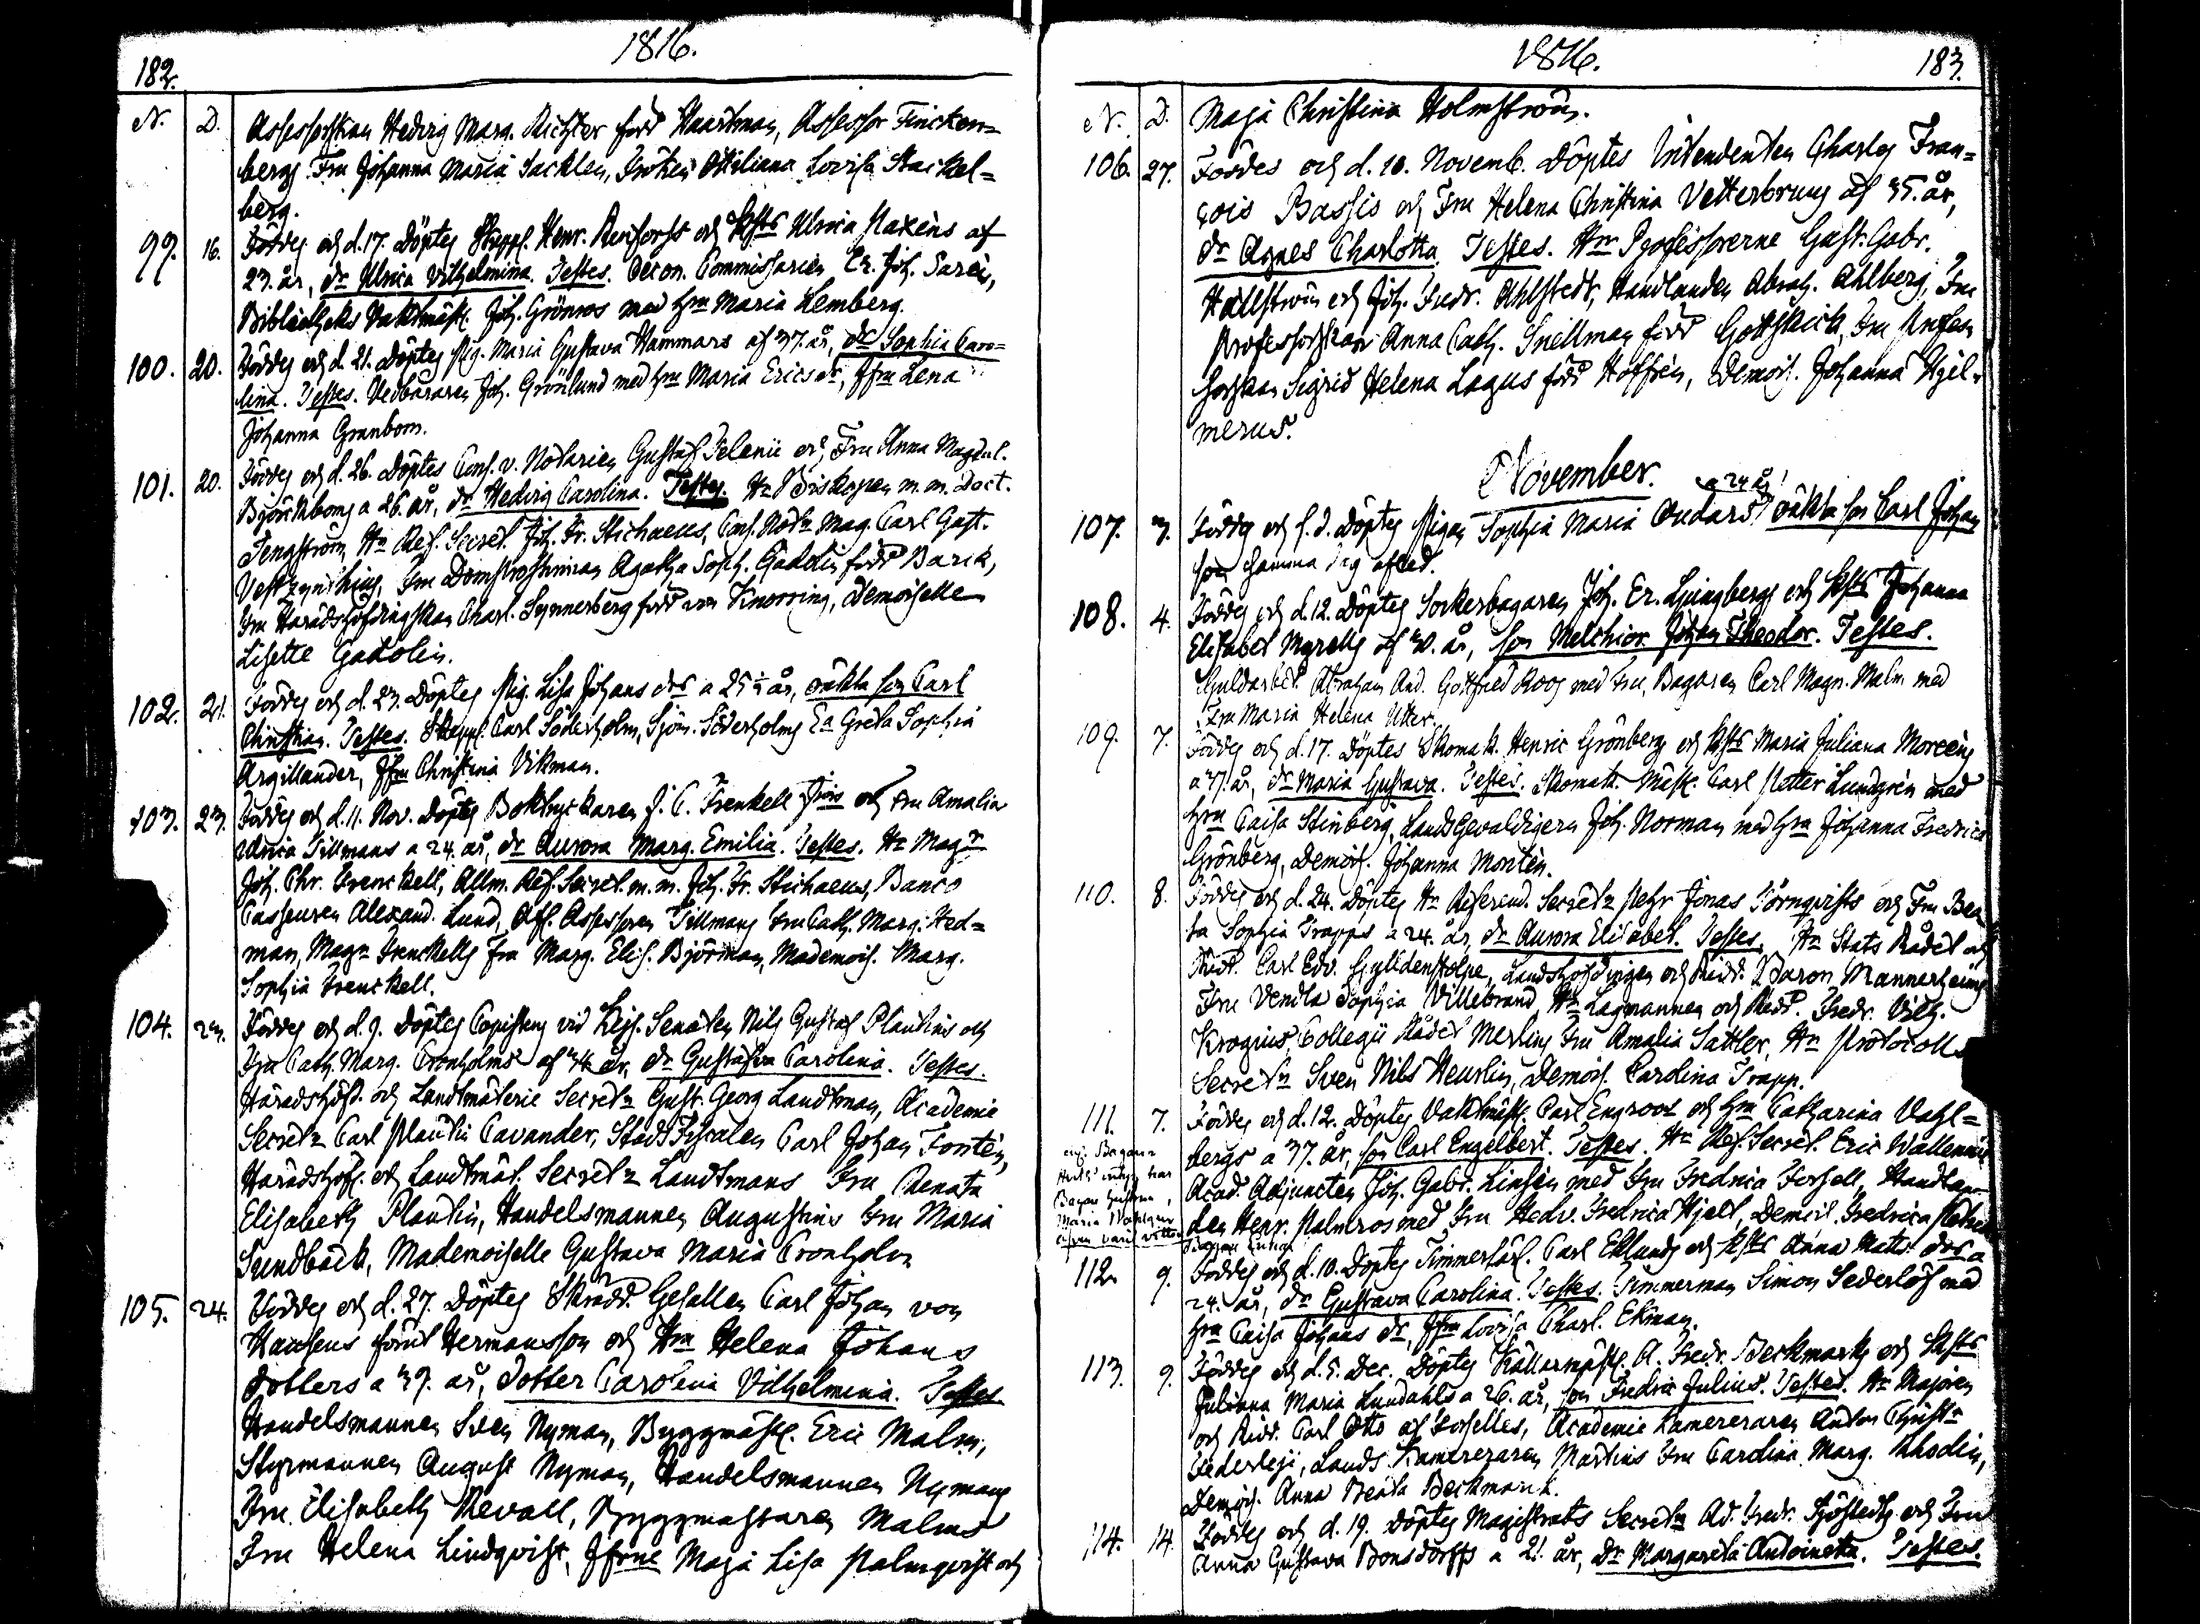 182.
1816.
N. D.
Assessorskan Hedvig Marg. Richter född Haartman, Assessor Fincken=
bergs Fru Johanna Maria Sacklen, Fröken Ottiliana Lovisa Stackel=
berg.
99. 16. Föddes och d. 17. Döptes Henr. Renfors's och Hsts Ulrica Maxéns af
23. år, dr Ulrica Vilhelmina. Testes. Oecon. Commissarien Er. Joh. Sarén,
Bibliotheks Vaktmäst. Joh. Grönros med hru Maria Lemberg.
100. 20. Föddes och d. 21. Döptes Pig. Maria Gustava Hammars af 37. år, dr Sophia Caro=
lina. Testes. Vedbäraren Joh. Grönlund med hru Maria Ericsdr, Jfru Lena
Johanna Granbom.
101. 20. Föddes och d. 26. Döptes Cons. v. Notarien Gustaf Idelanii och Fru Anna Magdal.
Björckboms a 26. år, dr Hedvig Carolina. Testes. Hr Biskopen m. m. Doct.
Tengström, Hr Ref. Secret. Joh. Fr. Stichaeus, Cons. Notn Mag. Carl Gust.
Vestzynthius, Fru Domprostinnan Agatha Soph. Gadolin född Barck,
Fru Häradshöfdingskan Charl. Synnerberg född von Knorring, Demoiselle
Lisette Gadolin.
102. 21. Föddes och d. 23. Döptes Pig. Lisa Johans drs a 25½ år, oäkta son Carl
Christian. Testes. Skepp. Carl Söderholm, Sjöm. Söderholms Ea Greta Sophia
Argillander, Jfru Christina Vikman.
103. 23. Föddes och d. 11. Nov. Döptes Boktryckaren J. C. Frenkell Juris och Fru Amalia
Ulrica Tillmans a 24. år, dr Aurora Marg. Emilia. Testes. Hr Magr
Joh. Chr. Frenckell, Allm. Ref. Secret. m. m. Joh. Fr. Stichaeus, Banco
Casseuren Alexand. Lund, Ass. Assessoren Tillmans Fru Cath. Marg. Hed=
man, Magn Frenckells fru Marg. Elis. Björman, Mademois. Marg.
Sophia Frenckell.
104. Föddes och d. 9. Döptes Copistens vid Kejs. Senaten Nils Gustaf Plautins och
Fru Cath. Marg. Cronholms af 34 år, dr Gustafva Carolina. Testes.
Häradshöfd. och Landtmäterie Secretn Gust. Georg Landtman, Academie
Secretn Carl Plautin Cavander, Stads Fiscalen Carl Johan Fortén,
Häradshöf. och Landtmät. Secretn Landtmans Fru Renata
Elisabeth Plautin, Handelsmannen Augustins Fru Maria
Sundbäck, Mademoiselle Gustava Maria Cronholm
105. 24. Föddes och d. 27. Döptes Skrädd. Gesällen Carl Johan von
Hausens förut Hermansson och Hru Helena Johans
dotters a 39. år, dotter Carolina Vilhelmina. Testes.
Handelsmannen Sven Nyman, Byggmäst. Eric Malm,
Styrmannen August Nyman, Handelsmannen Nymans
Fru Elisabeth Revall, Byggmästaren Malms
Fru Helena Lindqvist, Jfrune Maja Lisa Palmqvist och
1816.
183.
N. D.
Maja Christina Holmström.
106. 27. Föddes och d. 10. Novemb. Döptes Intendenten Charles Fran=
çois Bassis och Fru Helena Christina Vetterbruns af 35. år,
dr Agnes Charlotta. Testes. Hrr Professorerne Gust. Gabr.
Hällström och Joh. Fredr. Ahlstedt, Handlanden Abrah. Ahlberg, Fru
Professorskan Anna Cath. Snellman född Gottskick, Fru Profes=
sorskan Sigrid Helena Lagus född Hoffrén, Demois. Johanna Hjel=
merus.
November.
a 24 år
107. 3. Föddes och s. d. Döptes Pigan Sophia Maria Oudars oäkta son Carl Johan
som samma dag afled.
108. 4. Föddes och d. 12. Döptes Sockerbagaren Joh. Er. Ljungbergs och Hsts Johanna
Elisabet Myrells af 30. år, son Melchior Johan Theodor. Testes.
Guldarbet. Abraham And. Gottfried Roos med Fru, Bagaren Carl Magn. Malm med
Fru Maria Helena Utter.
109. 7. Föddes och d. 17. Döptes Skomak. Henric Grönbergs och Hsts Maria Juliana Morééns
a 37. år, dr Maria Gustava. Testes. Skomak. Mäst. Carl Petter Lundgrén med
hru Caisa Stinberg, Lands Gevaldigern Joh. Norman med hru Johanna Fredrica
Grönberg, Demois. Johanna Montén.
110. 8. Föddes och d. 24. Döptes Hr Referend. Secretn Pehr Jonas Törnqvists och Fru Bea=
ta Sophia Trapps a 24. år, dr Aurora Elisabet. Testes. Hr Stats Rådet och
Ridd. Carl Edv. Gyldenstolpe, Landshöfdingen och Ridd. Baron Mannerheims
Fru Vendla Sophia Villebrand, Hr Lagmannen och Ridd. Fredr. Vilh.
Krogius, Collegii Rådet Merlins Fru Amalia Sattler, Hr Protocolls
Secretn Sven Nils Heurlin, Demois. Carolina Trapp.
111. 7. Föddes och d. 12. Döptes Vaktmäst. Carl Engroos och hru Catharina Vahl=
bergs a 37. år, son Carl Engelbert. Testes. Hr Ref. Secret. Eric Wallenius
Acad. Adjuncten Joh. Gabr. Linsén med Fru Fredrica Forsell, Handlan=
den Henr. Palmros med Fru Hedv. Fredrica Hjelt, Demois. Fredrica
112. 9. Föddes och d. 10. Döptes Timmerkarl. Carl Eklunds och Hsts Anna Mats drs a
24. år, dr Gustava Carolina. Testes. Timmerman Simon Sederlöf med
hru Caisa Johans dr, Jfru Lovisa Charl. Ekman.
113. 9. Föddes och d. 5. Dec. Döptes Källarmäst. A. Fredr. Beckmarks och Hsts
Juliana Maria Lundahls a 26. år, son Fredric Julius. Testes. Hr Majoren
och Ridd. Carl Otto af Forselles, Academie Kamereraren Anton Christn
Federleji, Lands Kamereraren Martins Fru Carolina Marg. Rhodin,
Demois. Anna Beata Beckmark.
114. 14. Föddes och d. 19. Döptes Magistrats Secretn Ad. Fredr. Sjöstedts och Fru
Anna Gustava Bonsdorffs a 21. år, Dr Margareta Antoinetta. Testes.